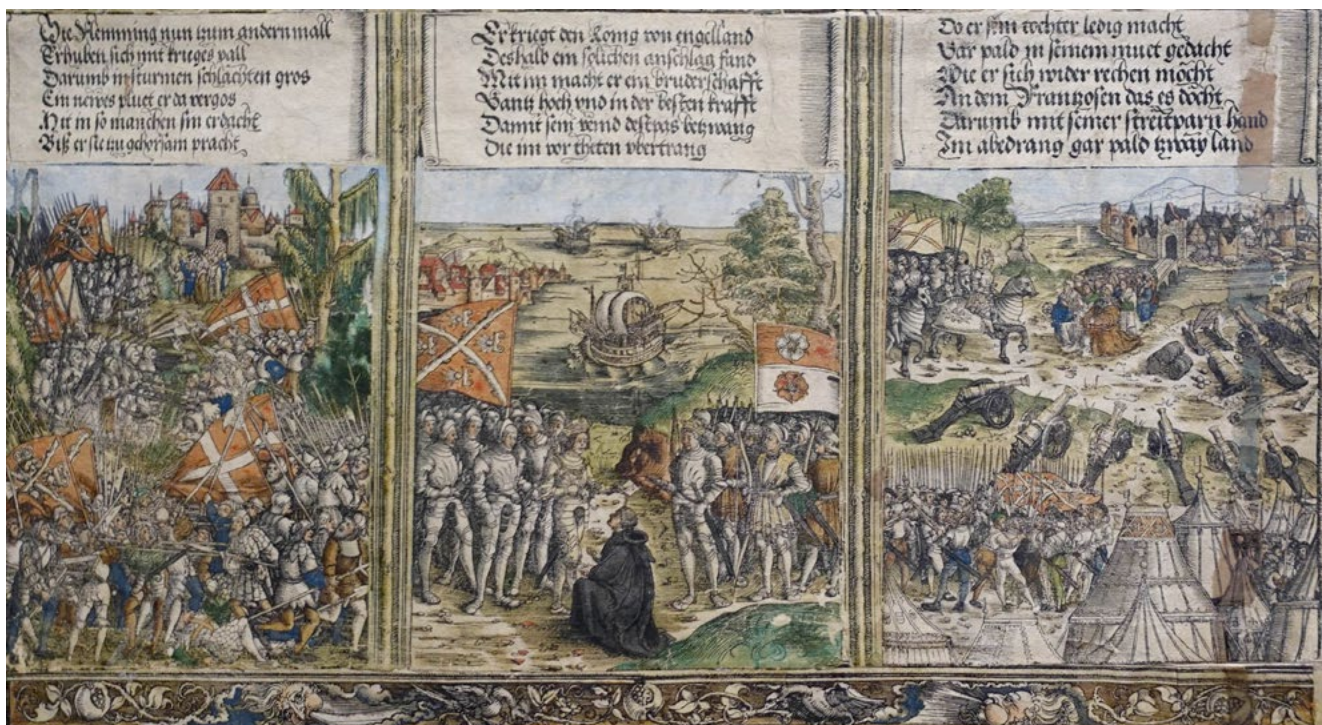 Die Flemming nun zum andern mall
Erhuben sich mit krieges vall
Darumb in sturmen schlachten gros
Ein newes pluet er da vergos
Mit in so manchen sin erdacht
Biß er sie zu gehorsam pracht
Er kriegt den König von engelland
Deshalb ein solichen anschlag fand
Mit im macht er ein bruderschafft
Gantz hoch vnd in der besten krafft
Damit sein veind destpas betzwang
Die im vor theten vbertrang
Do er sein tochter ledig macht
Gar pald in seinem muet gedacht
Wie er sich wider rechen möcht
An dem Frantzosen das es döcht
Darumb mit seiner streitparn hand
Im abedrang gar pald tzway land